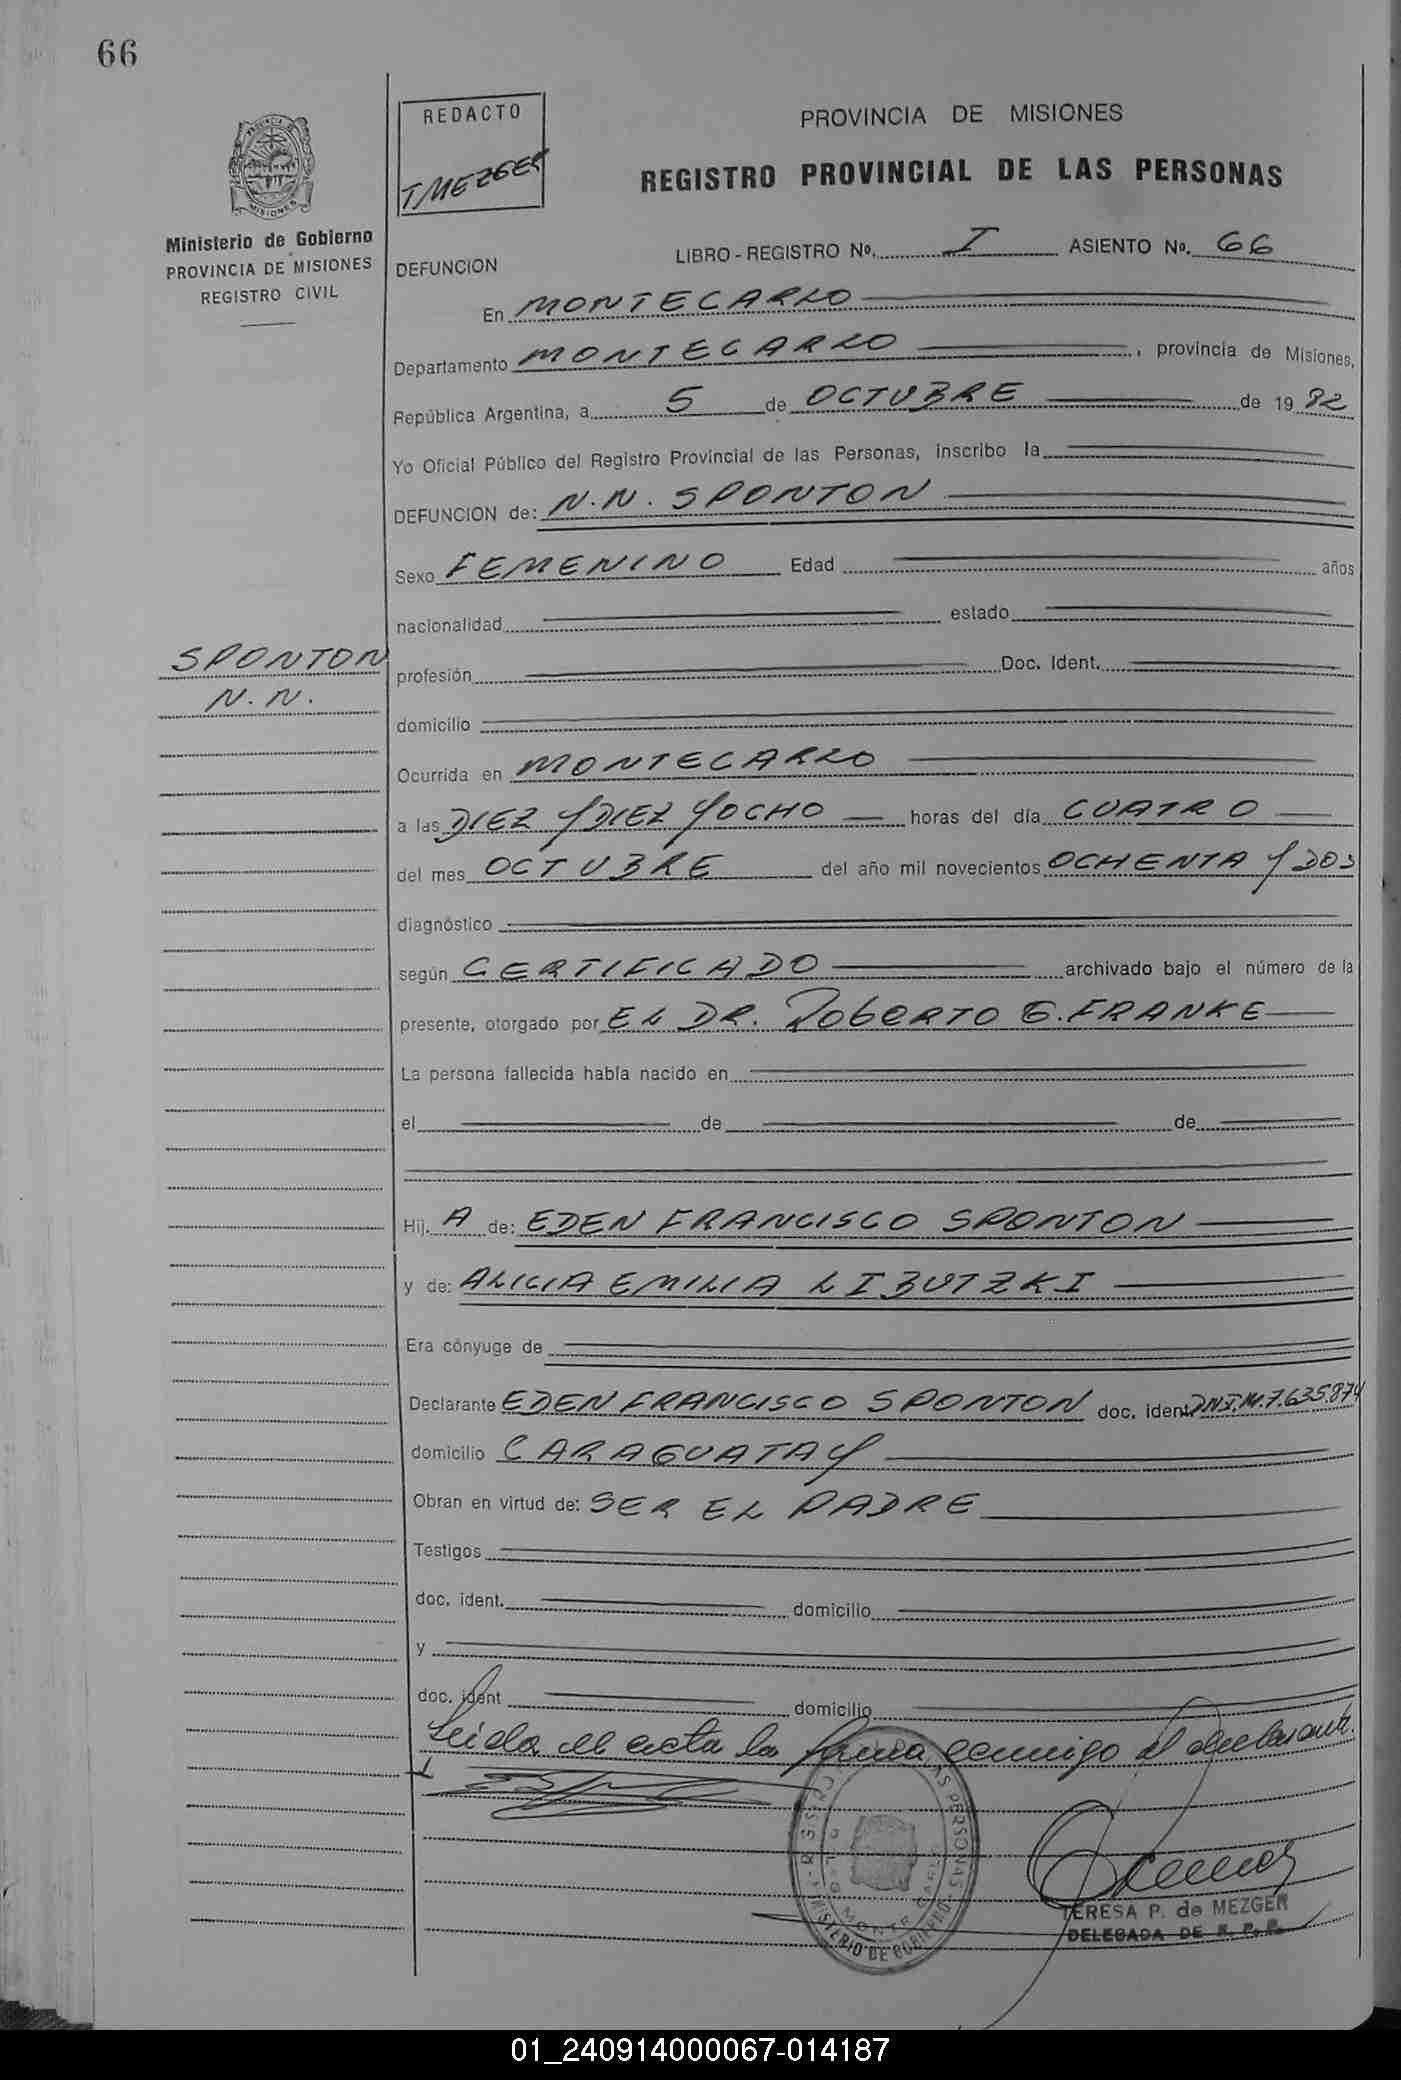 66
REDACTO
T MEZGER
PROVINCIA DE MISIONES
REGISTRO PROVINCIAL DE LAS PERSONAS
Ministerio de Gobierno
PROVINCIA DE MISIONES
REGISTRO CIVIL
DEFUNCION
LIBRO - REGISTRO Nº. I ASIENTO Nº. 66
En MONTECARLO
Departamento MONTECARLO, provincia de Misiones,
República Argentina, a 5 de OCTUBRE de 1982
Yo Oficial Público del Registro Provincial de las Personas, inscribo la
DEFUNCION de: N.N. SPONTON
Sexo FEMENINO Edad años
nacionalidad estado
SPONTON
N.N.
profesión Doc. Ident.
domicilio
Ocurrida en MONTECARLO
a las DIEZ Y DIEZ Y OCHO horas del día CUATRO
del mes OCTUBRE del año mil novecientos OCHENTA Y DOS
diagnóstico
según CERTIFICADO archivado bajo el número de la
presente, otorgado por EL DR. ROBERTO G. FRANKE
La persona fallecida había nacido en
el de de
Hij. A de: EDEN FRANCISCO SPONTON
y de: ALICIA EMILIA LIBUTZKI
Era cónyuge de
Declarante EDEN FRANCISCO SPONTON doc. ident. DNI.M.7.635.874
domicilio CARAGUATAY
Obran en virtud de: SER EL PADRE
Testigos
doc. ident. domicilio
y
doc. ident domicilio
Leida el acta la firma conmigo el declarante.
TERESA P. de MEZGER
DELEGADA DE R. P. P.
MINISTERIO DE GOBIERNO
01_240914000067-014187